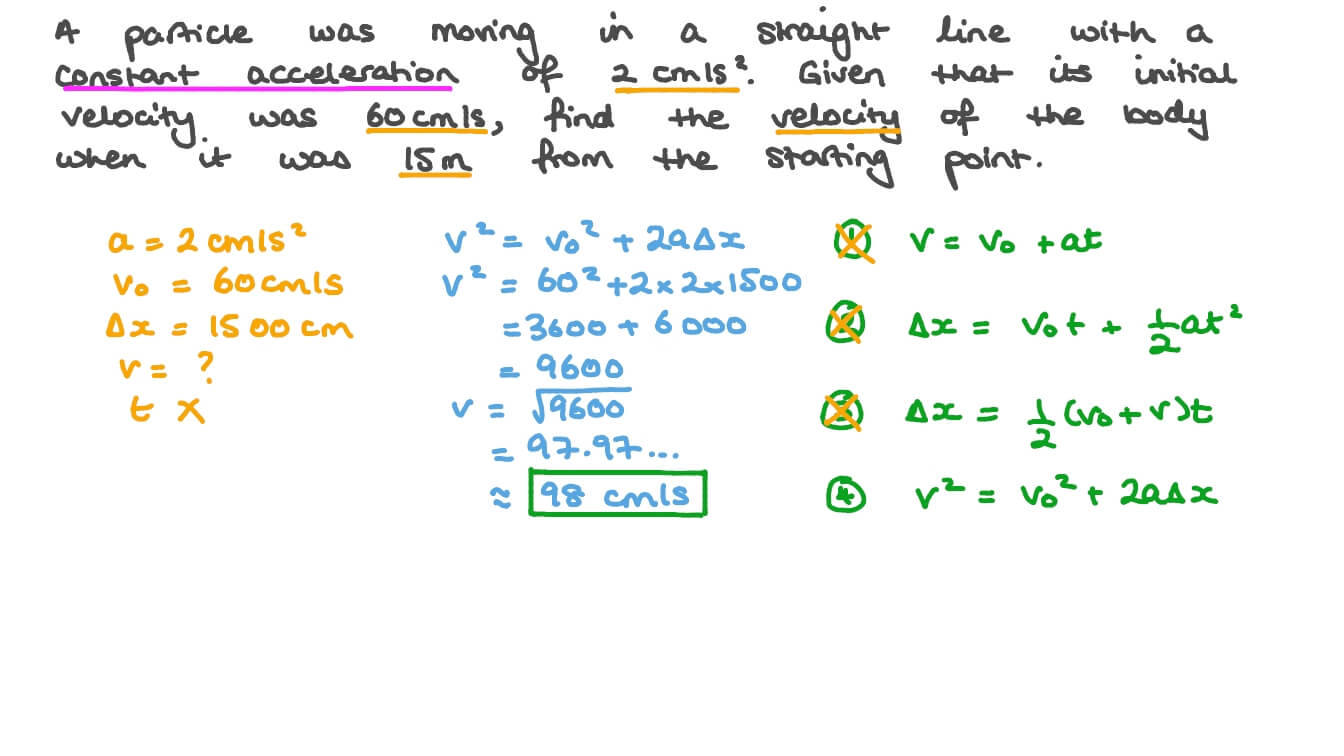 A particle was moving in a straight line with a
constant acceleration of 2 cm/s². Given that its initial
velocity was 60 cm/s, find the velocity of the body
when it was 15 m from the starting point.
a = 2 cm/s²
v₀ = 60 cm/s
Δx = 1500 cm
v = ?
t ×
v² = v₀² + 2aΔx
v² = 60² + 2 × 2 × 1500
= 3600 + 6000
= 9600
v = √9600
= 97.97...
≈ 98 cm/s
① v = v₀ + at
② Δx = v₀t + ½at²
③ Δx = ½(v₀ + v)t
④ v² = v₀² + 2aΔx